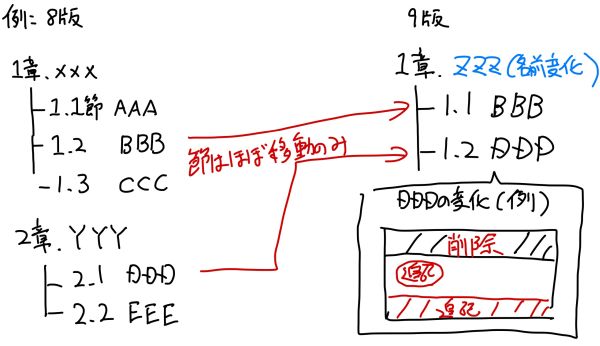 例: 8版
1章. xxx
1.1節 AAA
1.2 BBB
1.3 CCC
2章. YYY
2.1 DDD
2.2 EEE
節はほぼ移動のみ
9版
1章. ZZZ (名前変化)
1.1 BBB
1.2 DDD
DDDの変化 (例)
削除
追記
追記